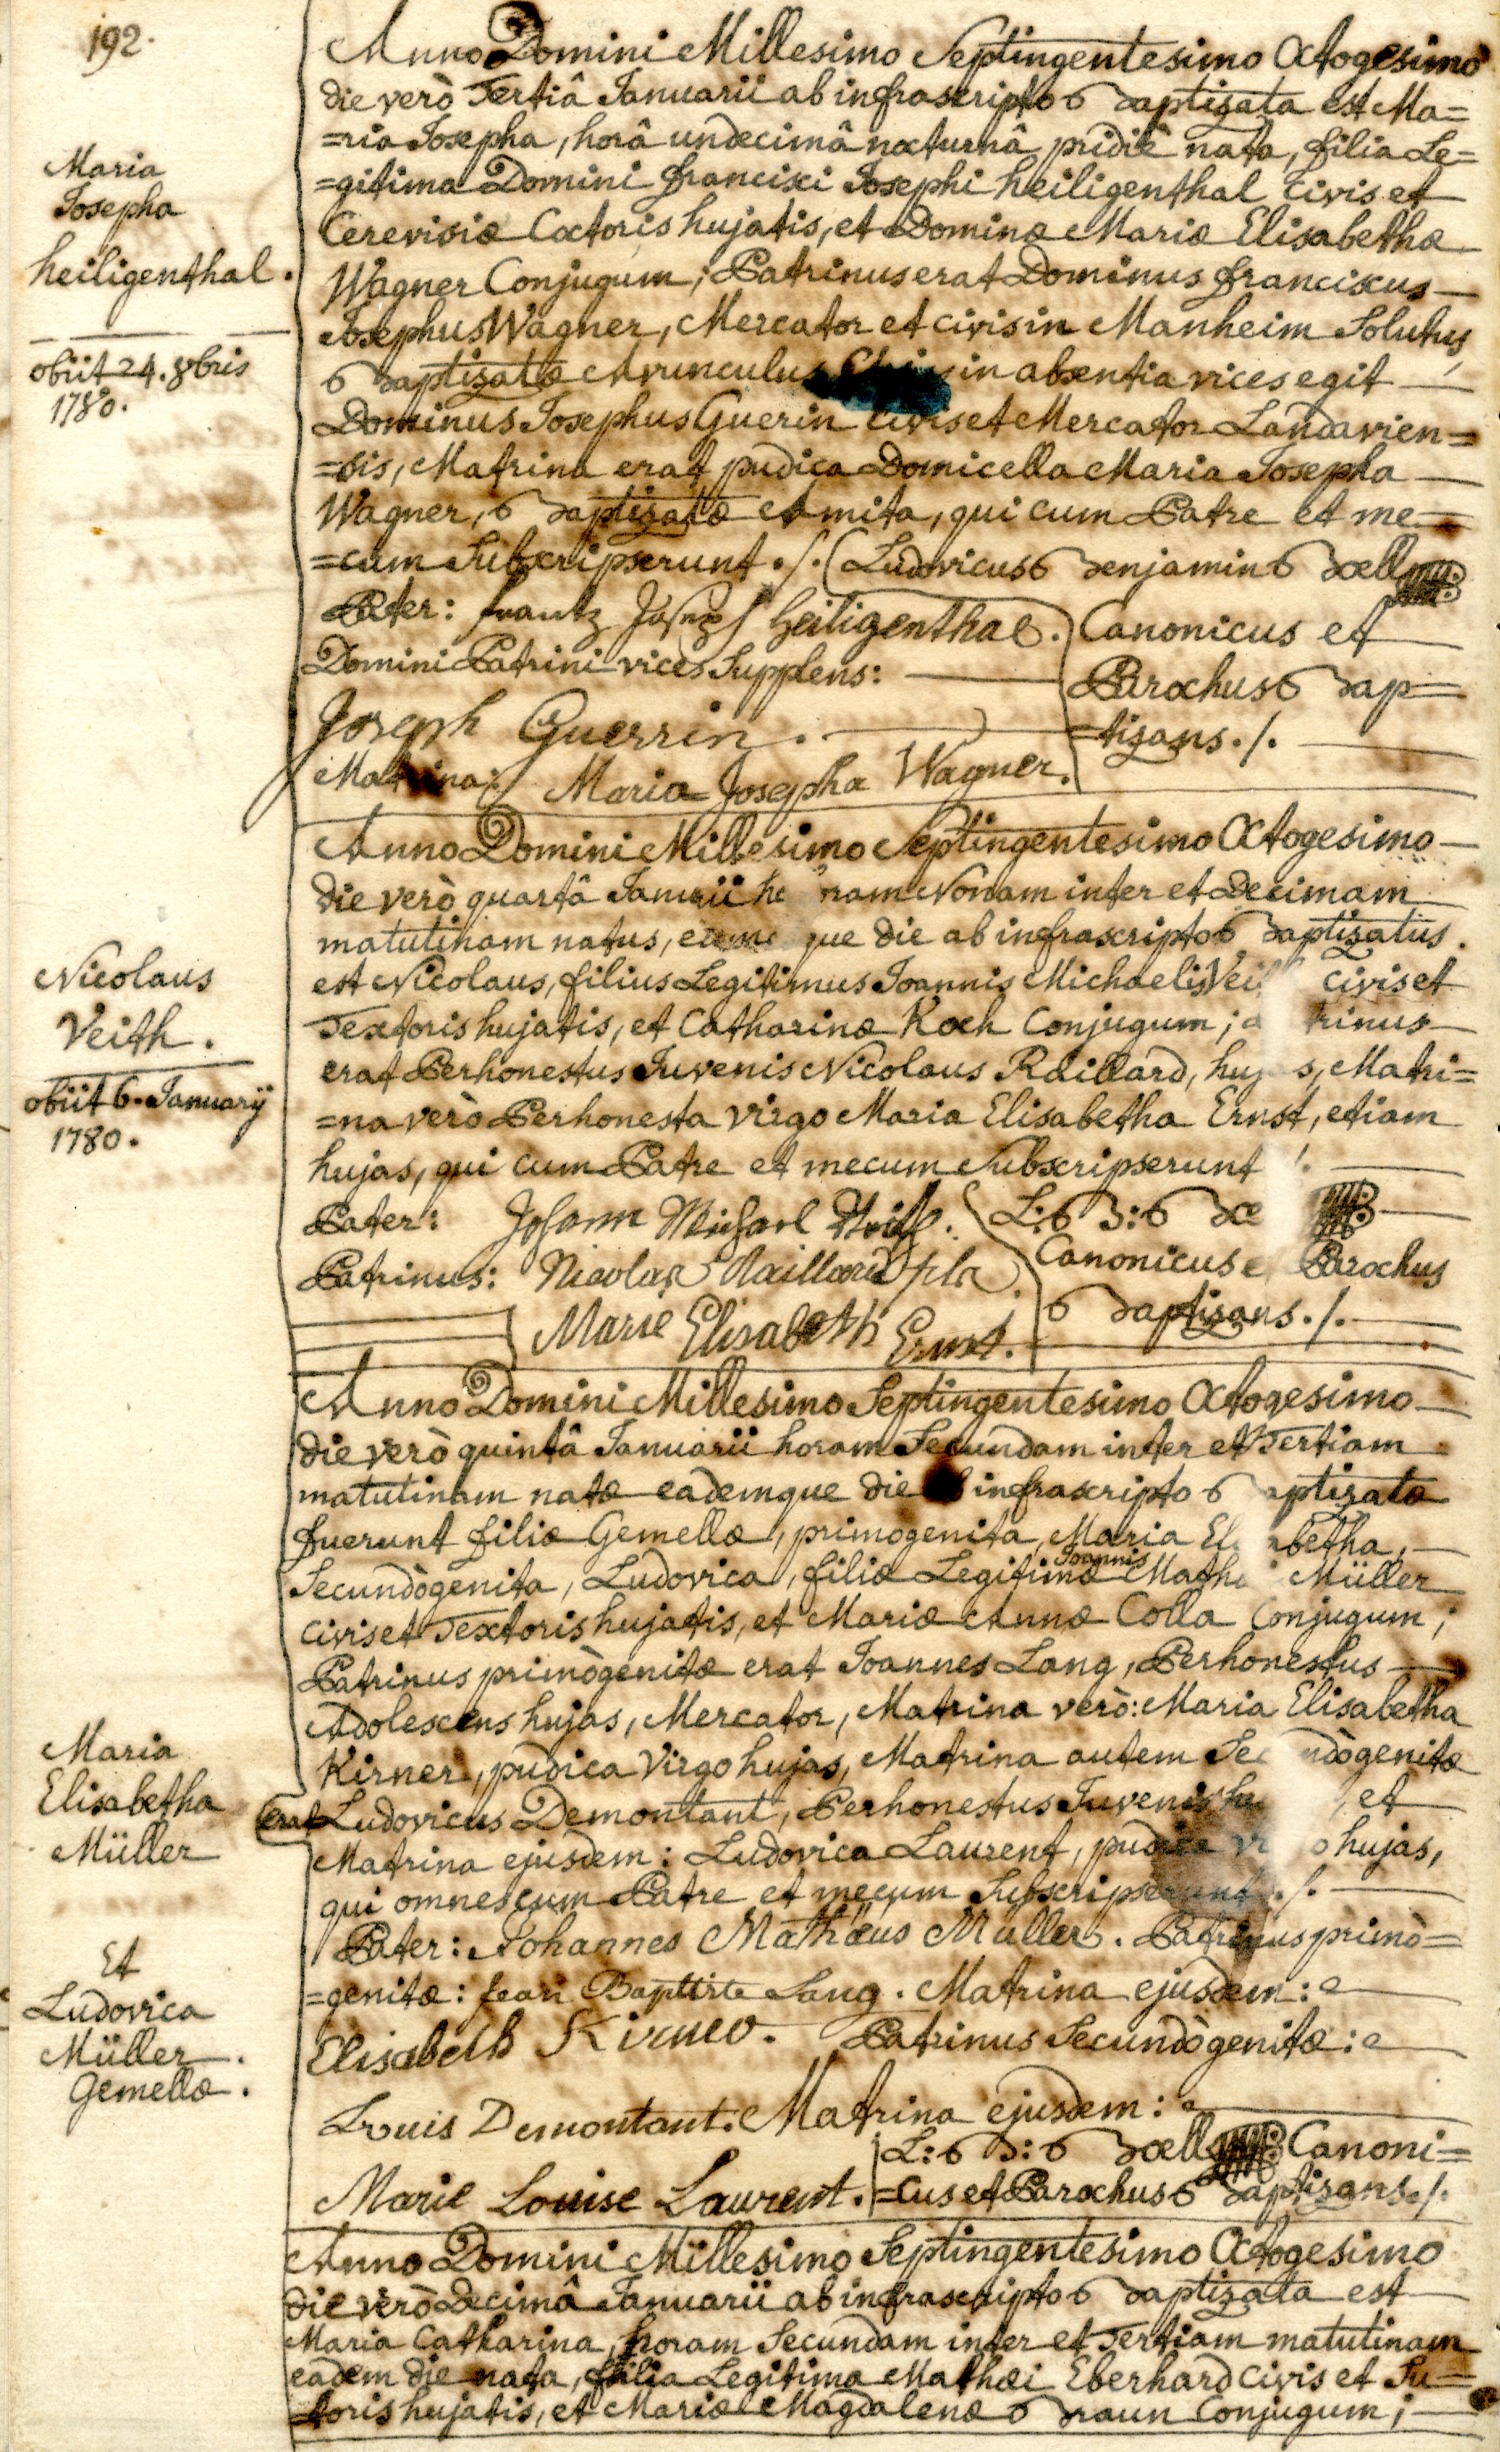 192.
Anno Domini Millesimo Septingentesimo Octogesimo
die verò Tertiâ Ianuarii ab infrascripto Baptizata est Ma=
=ria Iosepha, horâ undecimâ nocturnâ pridiè nata, filia Le=
=gitima Domini francisci Iosephi heiligenthal civis et
Cerevisiæ Coctoris hujatis, et Dominæ Mariæ Elisabethæ
Wagner Conjugum; Patrinus erat Dominus franciscus
Iosephus Wagner, Mercator et civis in Manheim Solutus,
Baptizatæ Avunculus in absentia vices egit
Dominus Iosephus Guerin Civis et Mercator Landavien=
=sis, Matrina erat pudica Domicella Maria Iosepha
Wagner, Baptizatæ Amita, qui cum Patre et me=
=cum Subscripserunt ./. Ludovicus Benjamin Boell
Pater: frantz Joseph heiligenthal. Canonicus et
Domini Patrini vices Supplens: Parochus Bap=
Joseph Guerrin. =tizans ./.
Matrina: Maria Josepha Wagner.
Maria
Iosepha
heiligenthal.
obiit 24. 8bris
1780.
Anno Domini Millesimo Septingentesimo Octogesimo
die verò quartâ Ianuarii horam Nonam inter et Decimam
matutinam natus, que die ab infrascripto Baptizatus
est Nicolaus, filius Legitimus Ioannis Michaelis civis et
Textoris hujatis, et Catharinæ Koch Conjugum;
erat Perhonestus Iuvenis Nicolaus Raillard, Matri=
=na verò Perhonesta Virgo Maria Elisabetha Ernst, etiam
hujas, qui cum Patre et mecum Subscripserunt ./.
Pater: Johann Michael Veith. L: B:
Patrinus: Nicolas Raillard Canonicus Parochus
Marie Elisabeth Ernst. Baptizans ./.
Nicolaus
Veith.
obiit 6. Januarÿ
1780.
Anno Domini Millesimo Septingentesimo Octogesimo
die verò quintâ Ianuarii horam Secundam inter et Tertiam
matutinam natæ eademque die infrascripto Baptizatæ
fuerunt filiæ Gemellæ, primogenita, Maria Elisabetha,
Secundògenita, Ludovica, filiæ Legitimæ Ioannis Müller
civis et Textoris hujatis, et Mariæ Annæ Colla Conjugum;
Patrinus primògenitæ erat Ioannes Lang, Perhonestus
Adolescens hujas, Mercator, Matrina verò: Maria Elisabetha
Kirner, pudica Virgo hujas, Matrina autem Secundògenitæ
erat Ludovicus Demontant, Perhonestus Iuvenis et
Matrina ejusdem: Ludovica Laurent, pudica hujas,
qui omnes cum Patre et mecum Subscripserunt ./.
Pater: Johannes Mathäus Müller. Patrinus primò=
=genitæ: Jean Baptiste Lang. Matrina ejusdem:
Elisabeth Kirner. Patrinus Secundògenitæ:
Louis Demontant. Matrina ejusdem:
L: B: Boell Canoni=
Marie Louise Laurent. =cus et Parochus Baptizans ./.
Maria
Elisabetha
Müller
Et
Ludovica
Müller.
Gemellæ.
Anno Domini Millesimo Septingentesimo Octogesimo
die verò Decimâ Ianuarii ab infrascripto Baptizata est
Maria Catharina, horam Secundam inter et Tertiam matutinam
eadem die nata, filia Legitima Mathæi Eberhard civis et Su=
=toris hujatis, et Mariæ Magdalenæ Braun Conjugum;